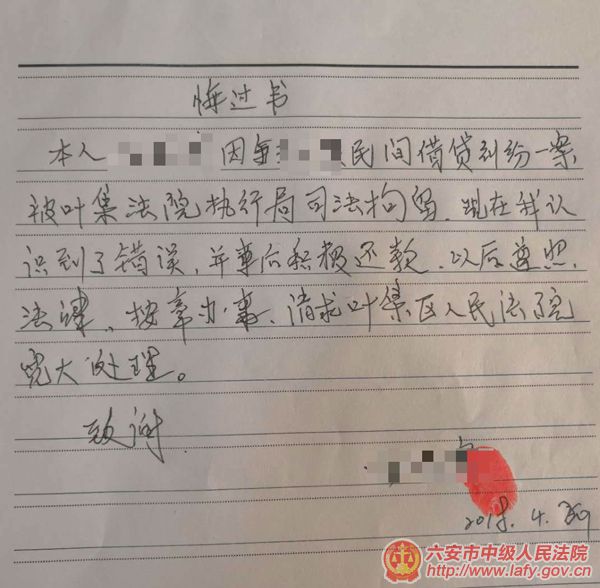 悔过书
本人 因与 民间借贷纠纷一案
被叶集法院执行局司法拘留、现在我认
识到了错误,并事后积极还款、以后遵照
法律、按章办事、请求叶集区人民法院
宽大处理。
致谢
2018.4.
六安市中级人民法院
http://www.lafy.gov.cn